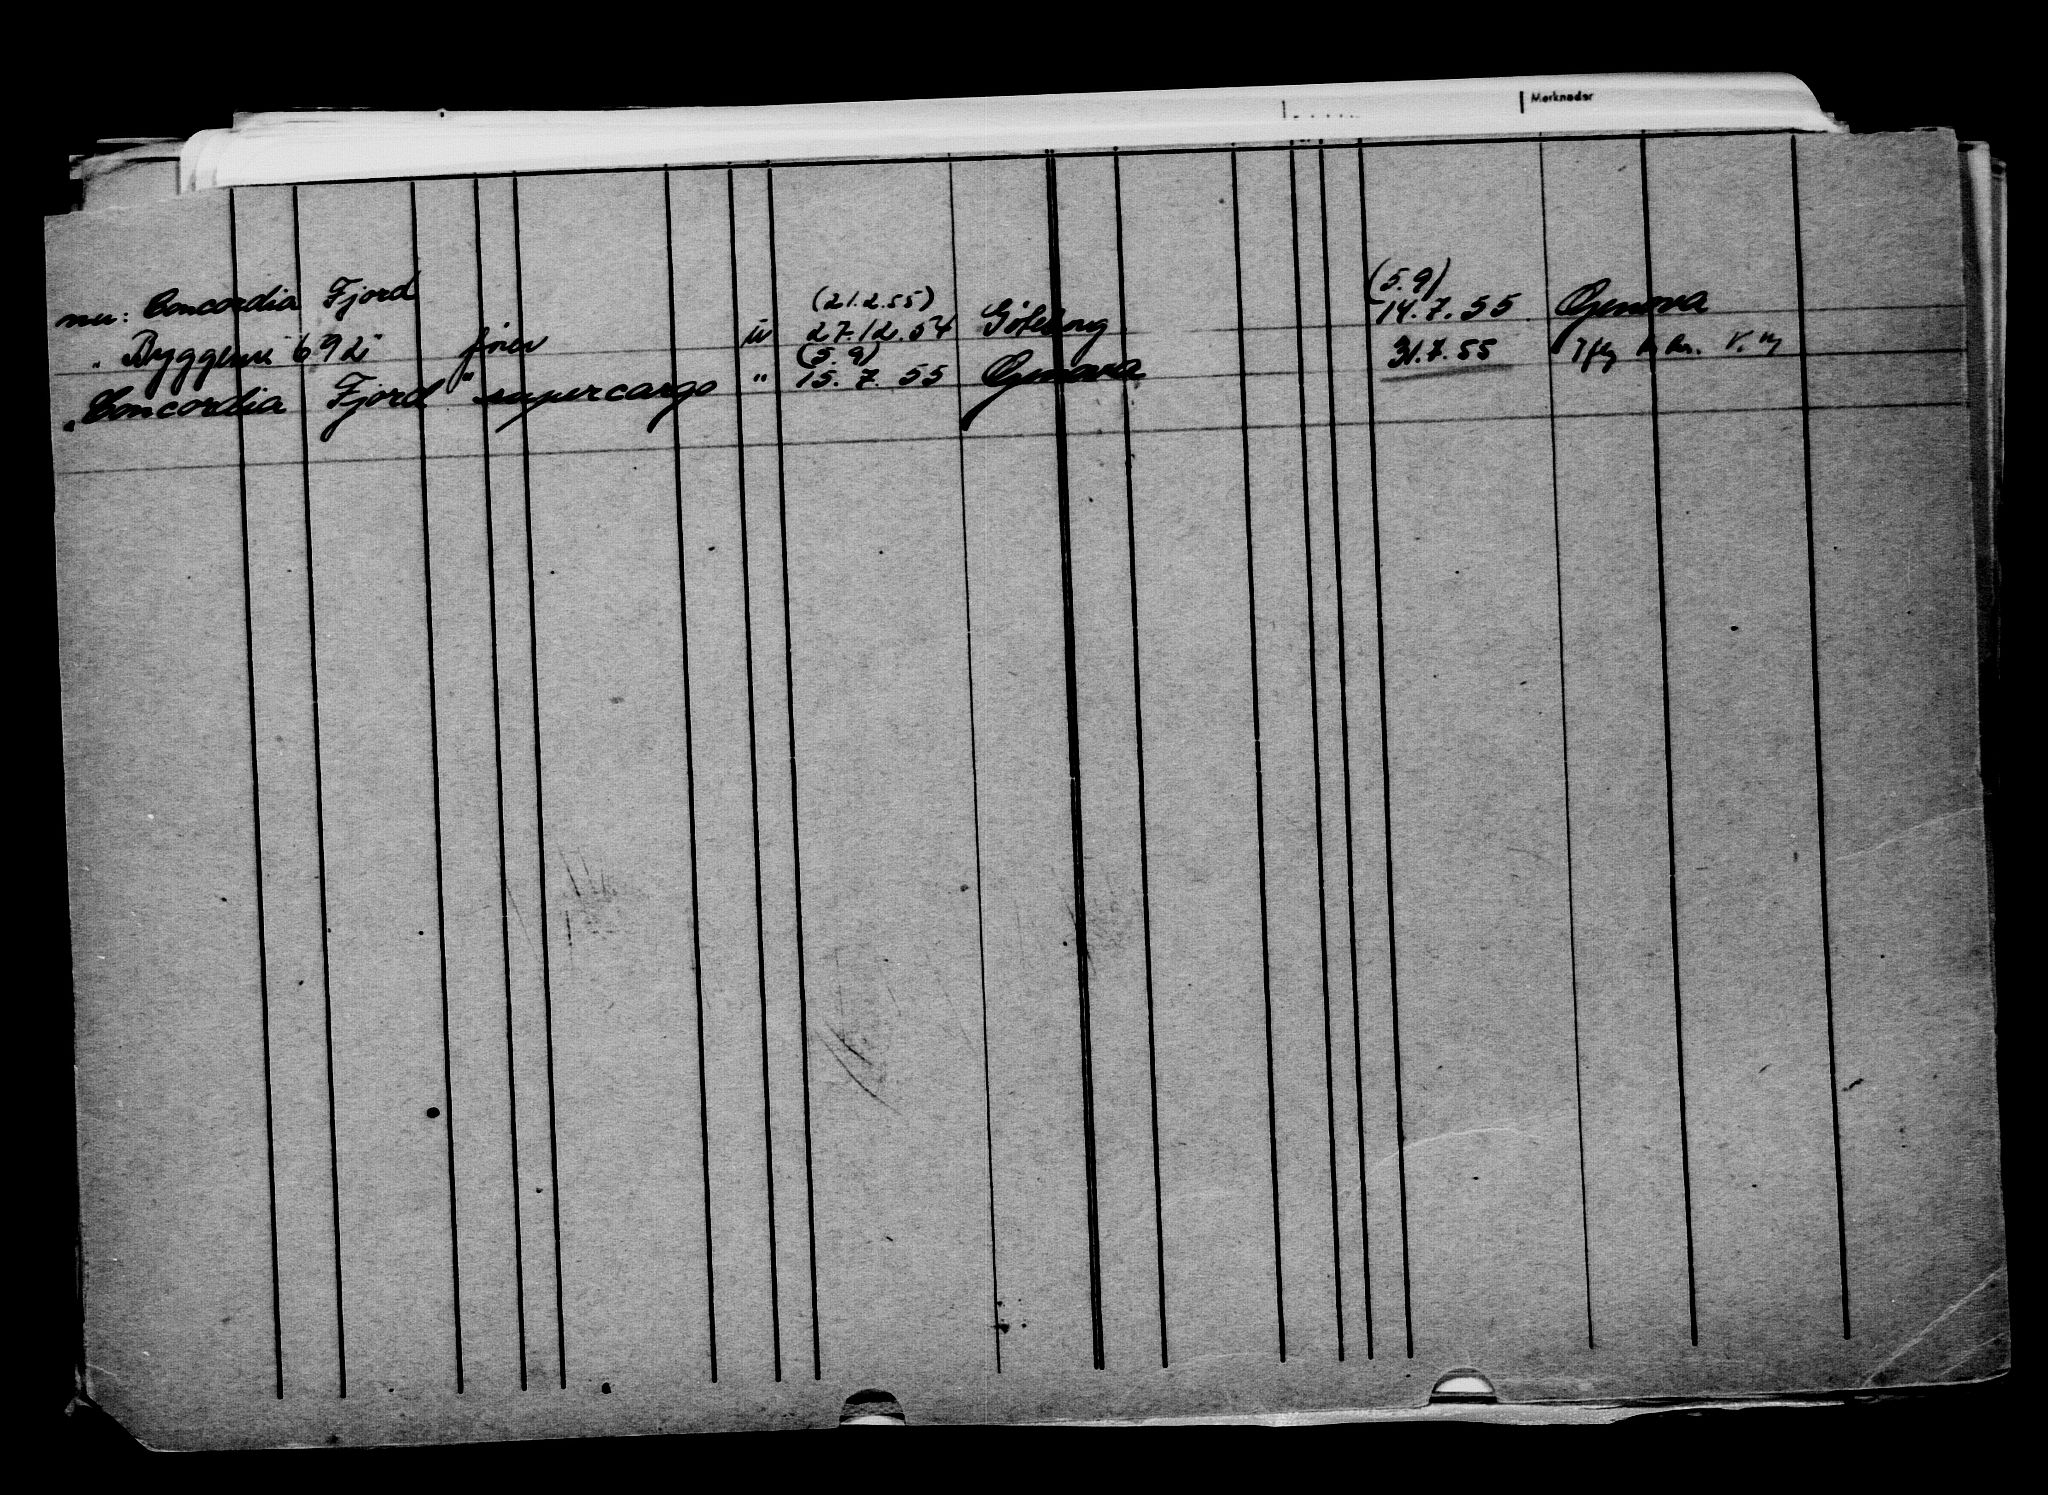 Merknader
ms: Concordia Fjord
" Byggenr. 692 fører u (21.2.55) 27.12.54 Göteborg (5.9) 14.7.55 Genova
" Concordia Fjord " supercargo " (5.9) 15.7.55 Genova 31.7.55